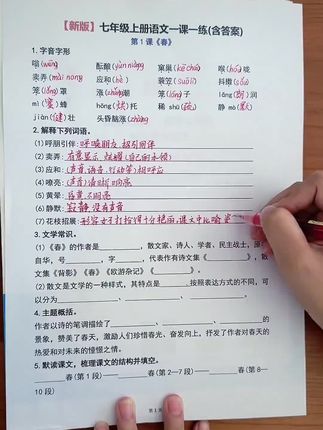 【新版】七年级上册语文一课一练(含答案)
第1课《春》
1. 字音字形
嗡(wēng) 酝酿(yùn niàng) 窠巢(kē cháo) 喉(hóu)咙
卖弄(mài nong) 应和(hè) 蓑笠(suō) 抖擞(sǒu)
笼(lǒng)罩 涨(zhǎng)潮 笼(lóng)子 朗(lǎng)润
mì(蜜)蜂 hōng(烘)托 稀 shū(疏) 黄晕(yùn)
jiàn(健)壮 头昏脑涨(zhàng)
2. 解释下列词语。
(1) 呼朋引伴:呼唤朋友,招引同伴
(2) 卖弄:有意显示、炫耀(自己的本领)
(3) 应和:(声音、语言、行动等)相呼应
(4) 嘹亮:(声音)清晰响亮
(5) 黄晕:昏黄不明亮
(6) 静默:寂静,没有声音
(7) 花枝招展:形容女子打扮得十分艳丽,课文中比喻
3. 文学常识。
(1) 《春》的作者是________,散文家、诗人、学者、民主战士,原
自华,号____,字____,代表作有诗文集《____》,散
文集《背影》《春》《欧游杂记》《____》。
(2) 散文是文学的一种样式,其特点是____按照表达方式的不同,可
以分为____________
4. 主题概括。
作者以诗的笔调描绘了____、____、____的
景象,赞美了春天,激励人们珍惜春光、奋发向上,抒发了作者对春天的
热爱和对未来的憧憬之情。
5. 默读课文,梳理课文的结构并填空。
____春(第1段)——____春(第2—7段)——____春(第8—
10段)
第1